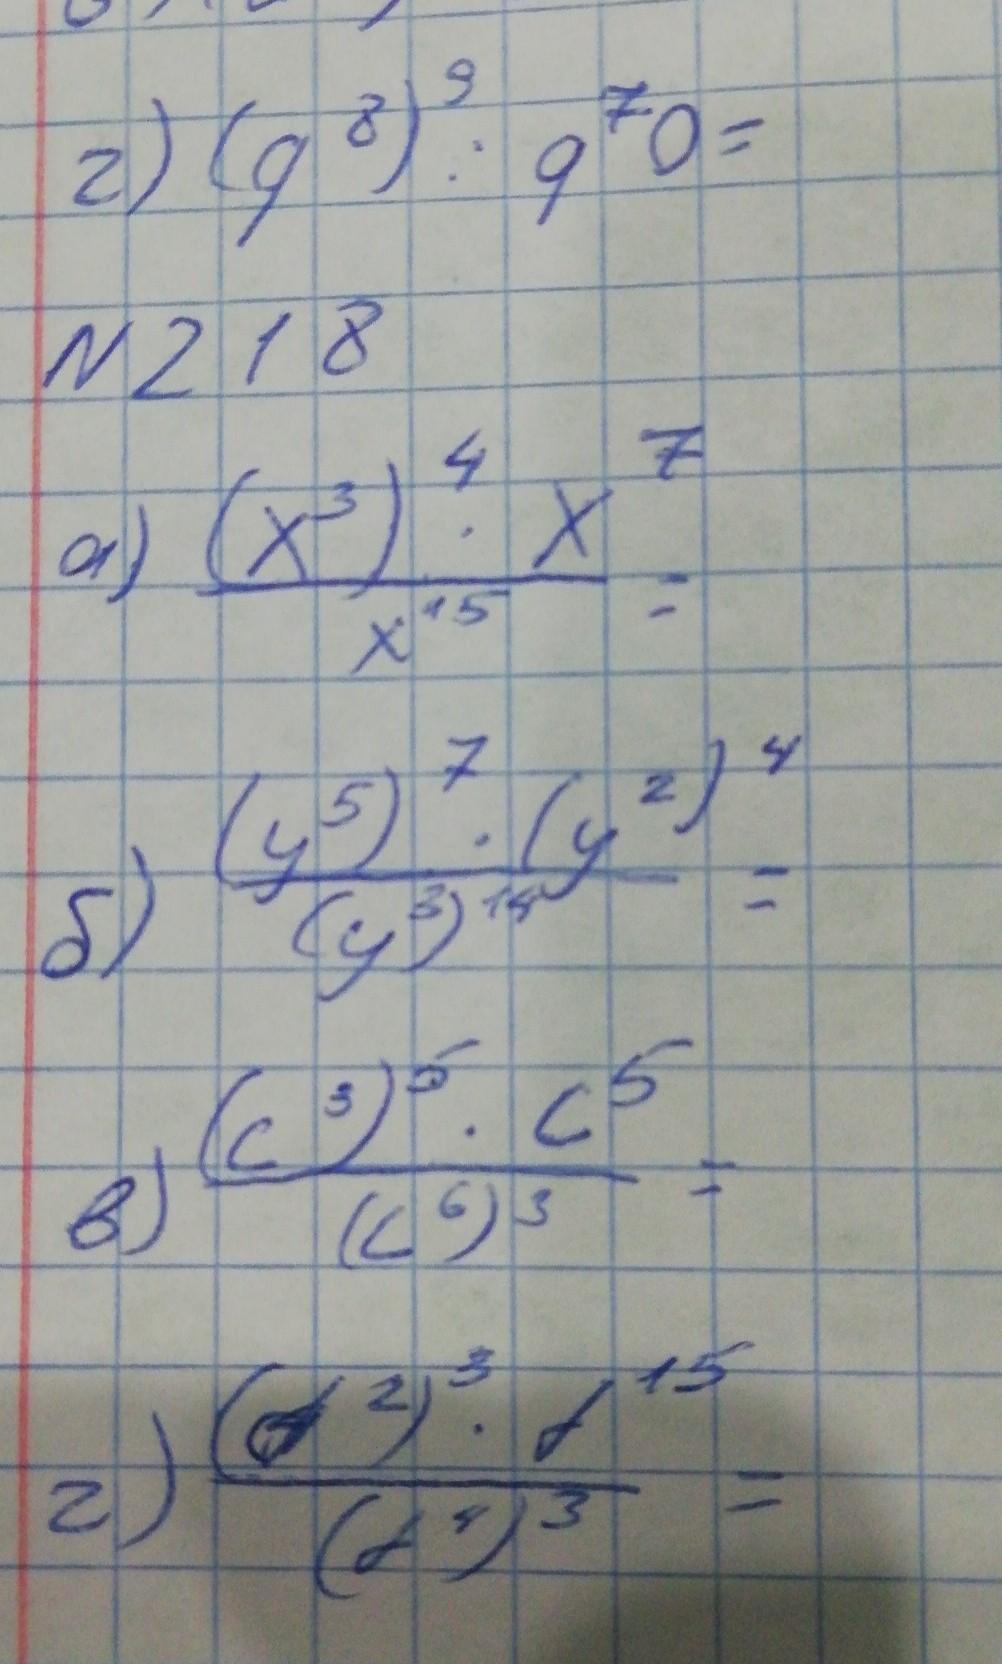 г) (q⁸)⁹ : q⁷0 =
N 218
а) (x³)⁴ · x⁷ / x¹⁵ =
б) (y⁵)⁷ · (y²)⁴ / (y³)¹⁴ =
в) (c³)⁵ · c⁵ / (c⁶)³ =
г) (d²)³ · d¹⁵ / (d⁴)³ =